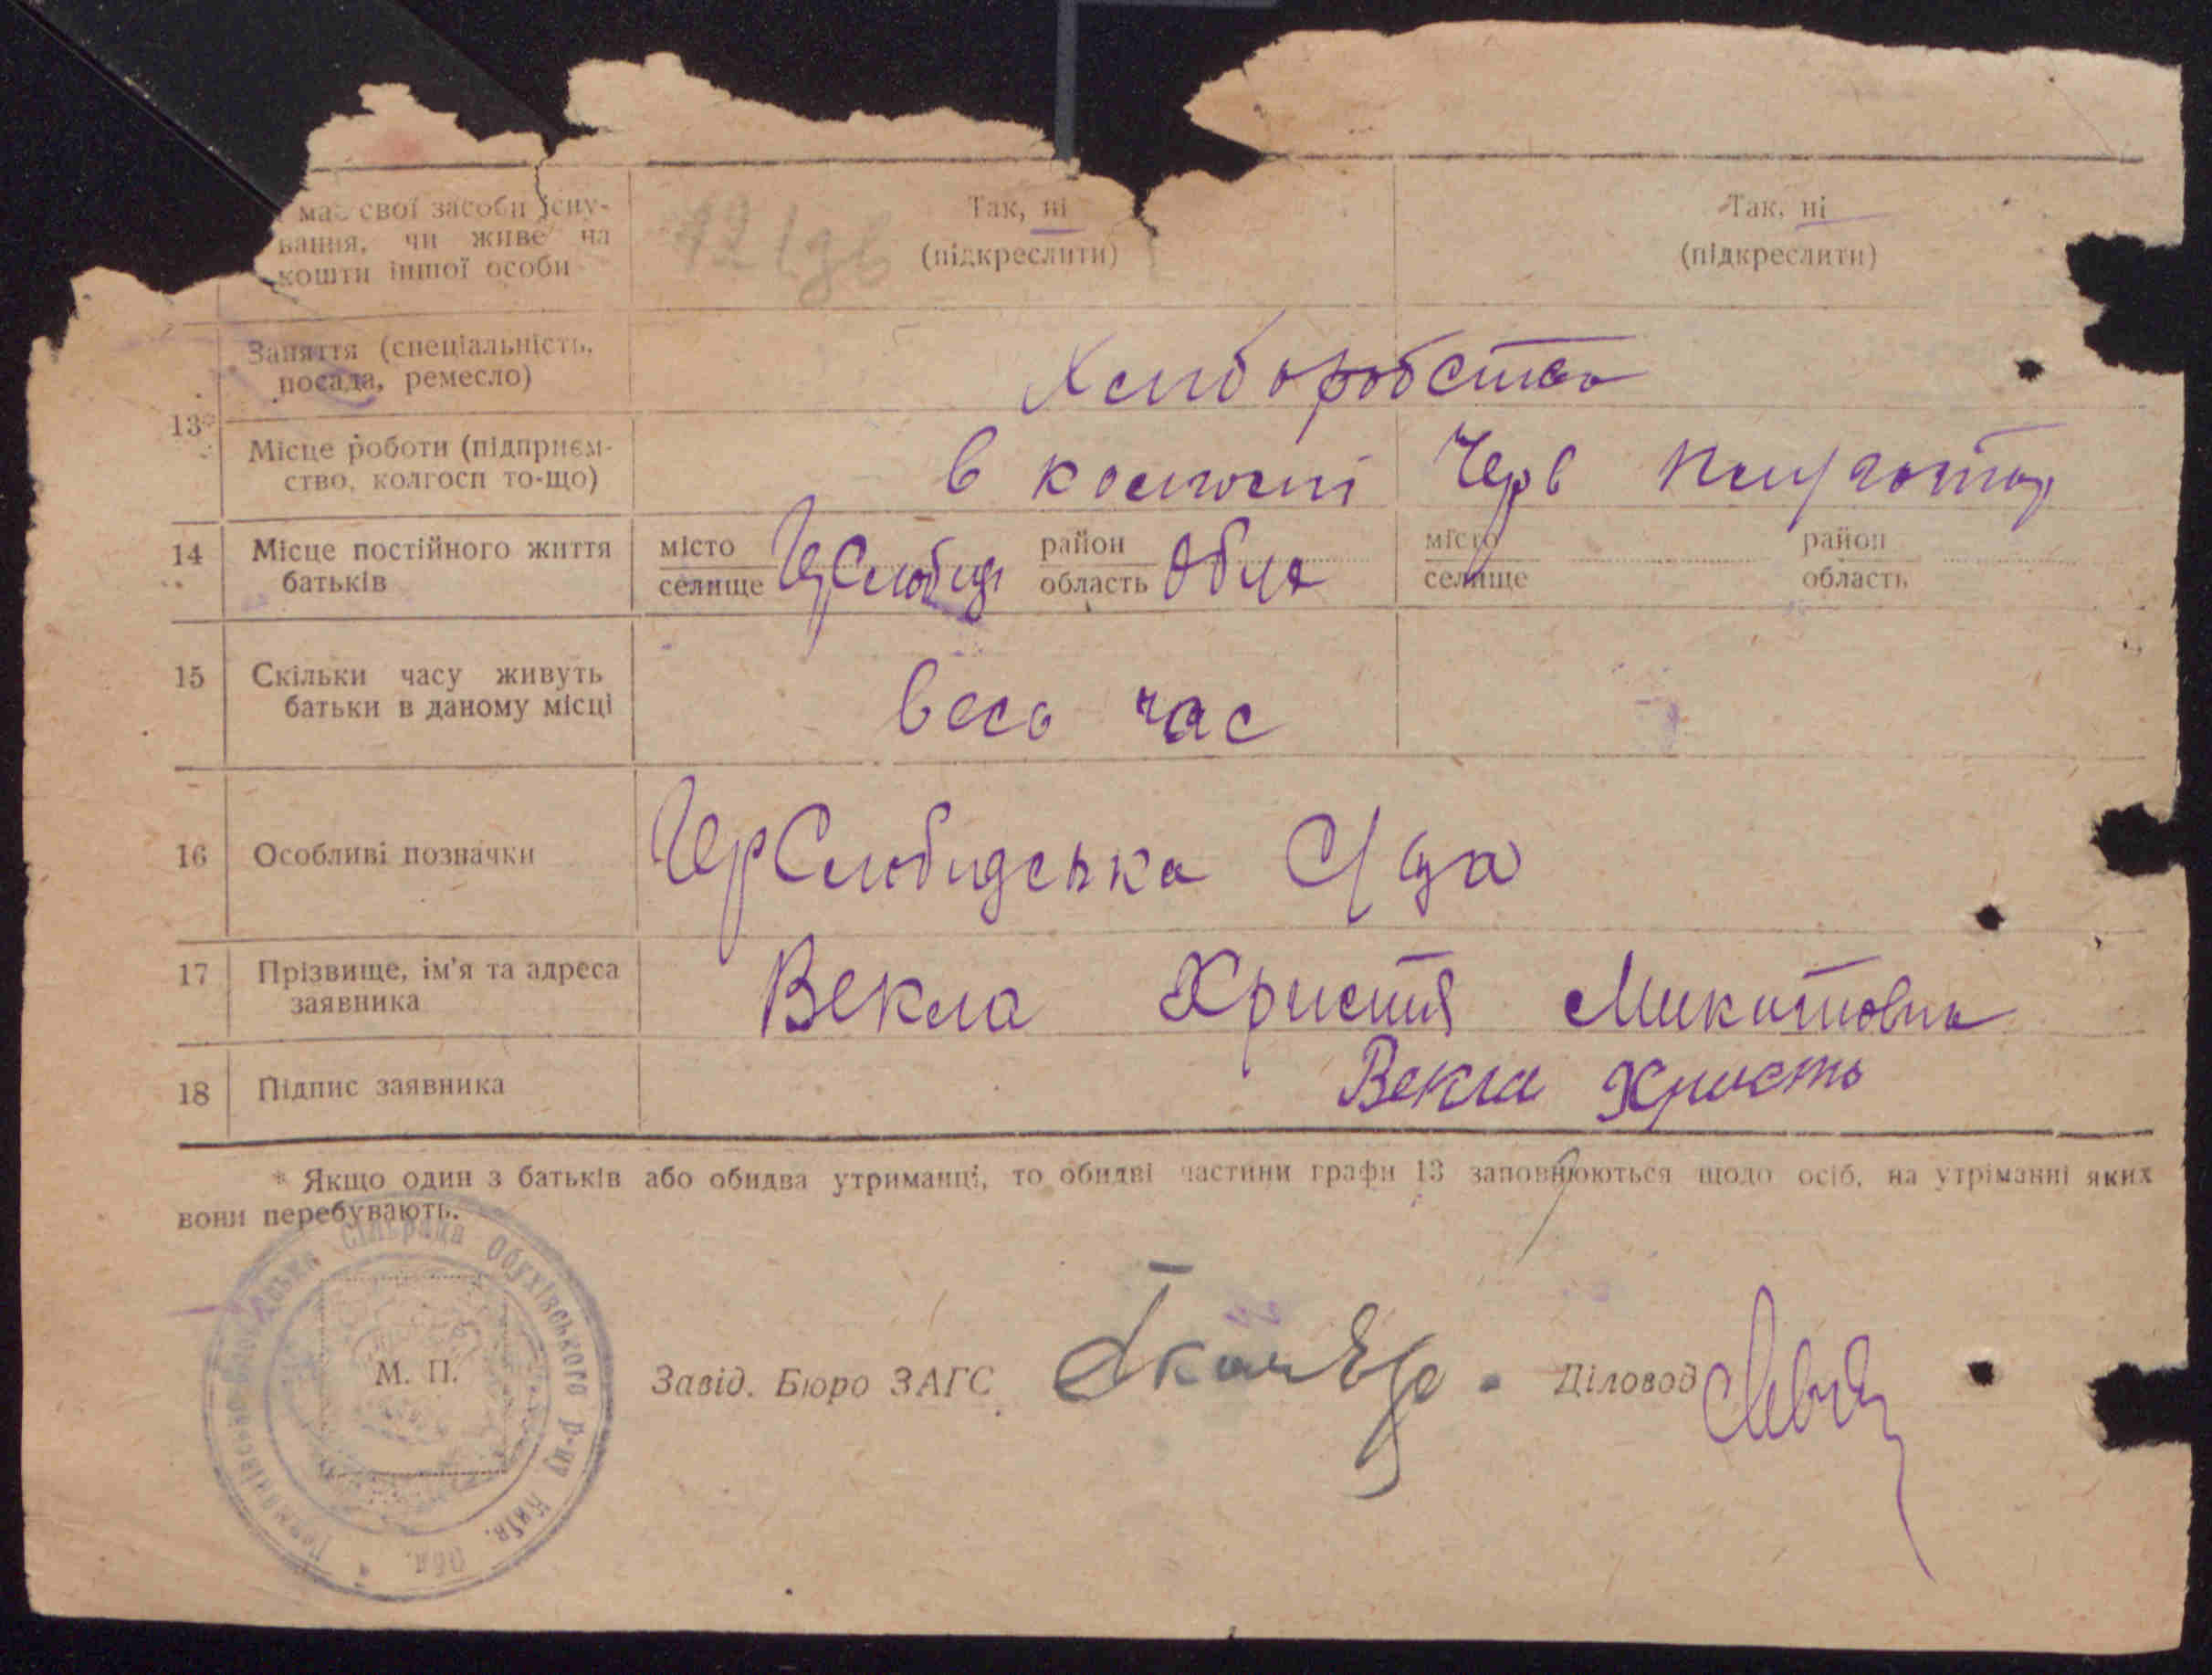 має свої засоби існу-
вання, чи живе на
кошти іншої особи
Так, ні
(підкреслити)
Так, ні
(підкреслити)
13*
Заняття (спеціальність,
посада, ремесло)
Хлиборобство
Місце роботи (підприєм-
ство, колгосп то-що)
в колгоспі Черв
14
Місце постійного життя
батьків
місто
селище
район
область
місто
селище
район
область
15
Скільки часу живуть
батьки в даному місці
весь час
16
Особливі позначки
ЧерСлободська С/рда
17
Прізвище, ім'я та адреса
заявника
Векла Христя Микитовна
18
Підпис заявника
Векла Христь
* Якщо один з батьків або обидва утриманці, то обидві частини графи 13 заповнюються щодо осіб, на утриманні яких
вони перебувають.
сільрада Обухівського р-ну Київ. Обл.
М. П.
Завід. Бюро ЗАГС
Діловод